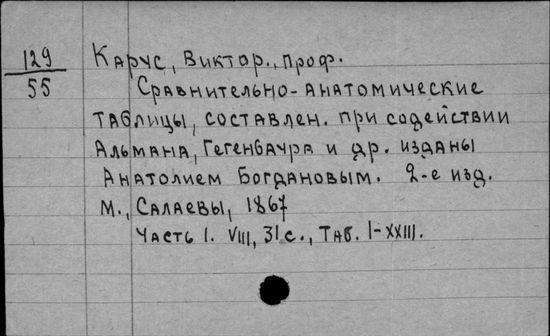 129
55
Карус, Виктор., проф.
Сравнительно-анатомические
таблицы, составлен. при содействии
Альмана, Гегенбаура и др. изданы
Анатолием Богдановым. 2-е изд.
М., Салаевы, 1867
Часть I. VIII, 31 с., Таб. I-XXIII.